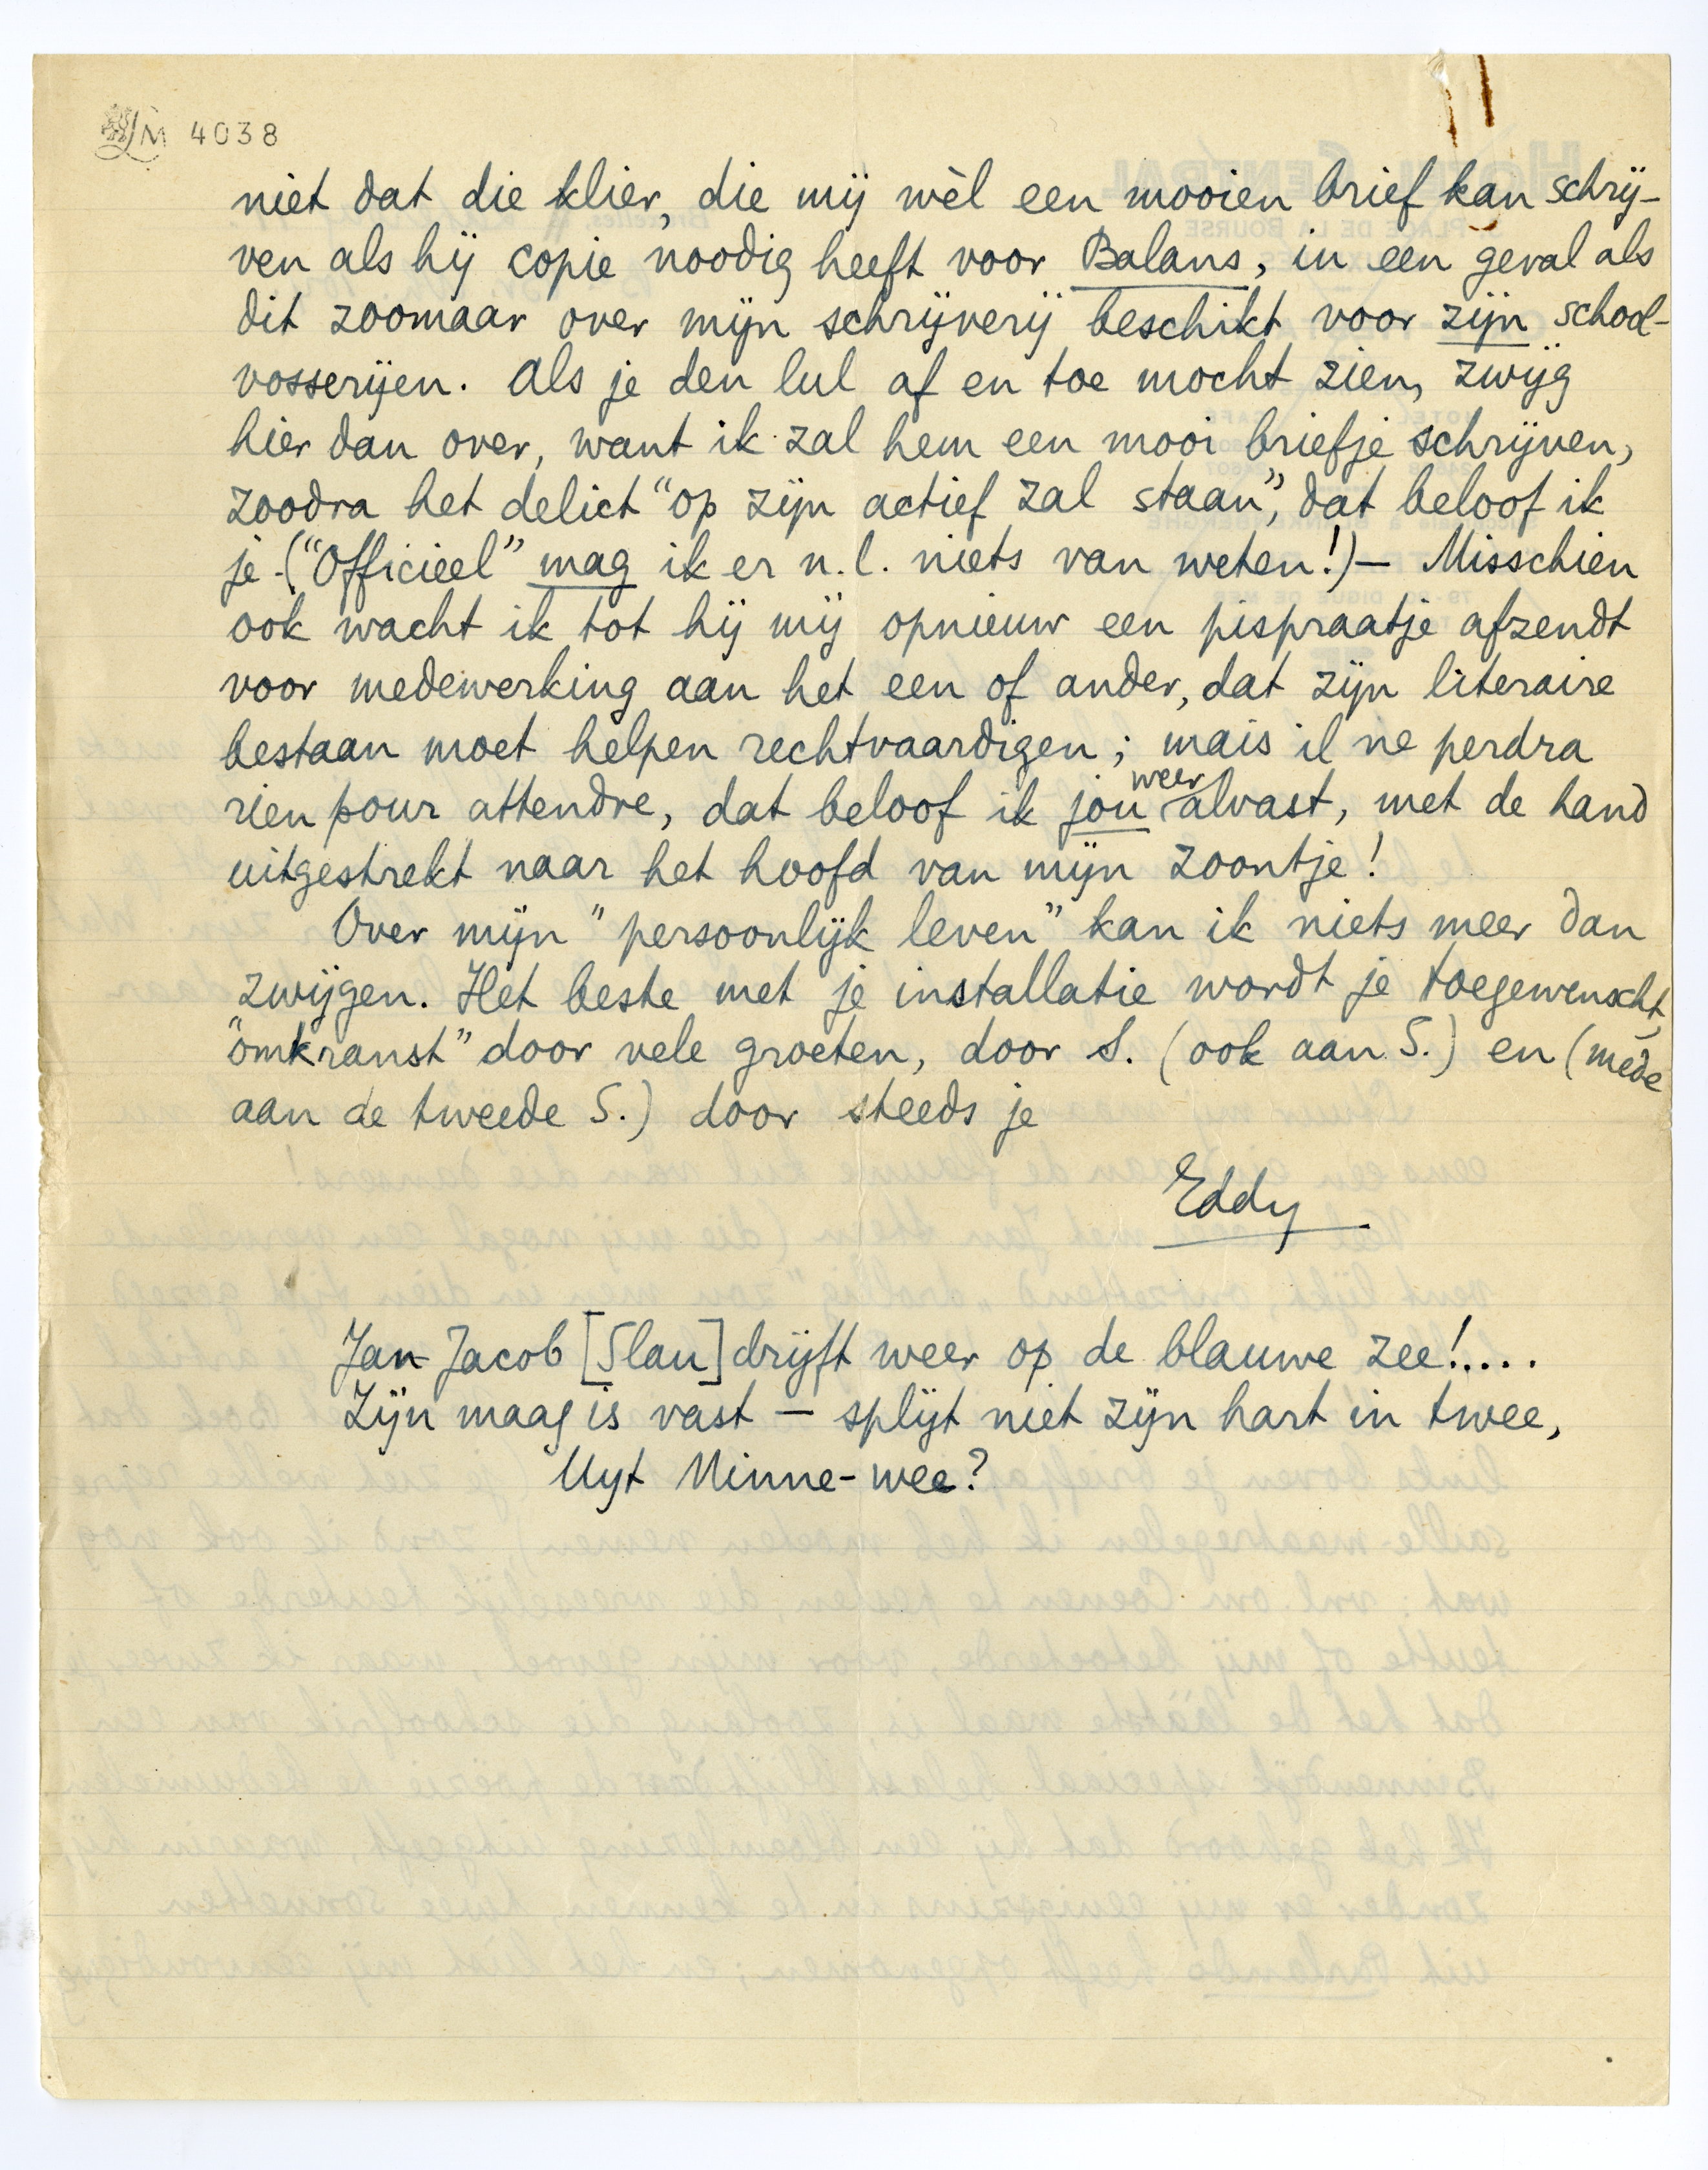 LM 4038
niet dat die klier, die mij wèl een mooien brief kan schrij-
ven als hij copie noodig heeft voor Balans, in een geval als
dit zoomaar over mijn schrijverij beschikt voor zijn school-
vosserijen. Als je den lul af en toe mocht zien, zwijg
hier dan over, want ik zal hem een mooi briefje schrijven,
zoodra het delict “op zijn actief zal staan”, dat beloof ik
je. (“Officieel” mag ik er n.l. niets van weten!) — Misschien
ook wacht ik tot hij mij opnieuw een pispraatje afzendt
voor medewerking aan het een of ander, dat zijn literaire
bestaan moet helpen rechtvaardigen; mais il ne perdra
rien pour attendre, dat beloof ik jou weer alvast, met de hand
uitgestrekt naar het hoofd van mijn zoontje!
Over mijn “persoonlijk leven” kan ik niets meer dan
zwijgen. Het beste met je installatie wordt je toegewenscht,
“omkranst” door vele groeten, door S. (ook aan S.) en (mede
aan de tweede S.) door steeds je
Eddy
Jan Jacob [Slau] drijft weer op de blauwe zee!....
Zijn maag is vast — splijt niet zijn hart in twee,
Uyt Minne-wee?